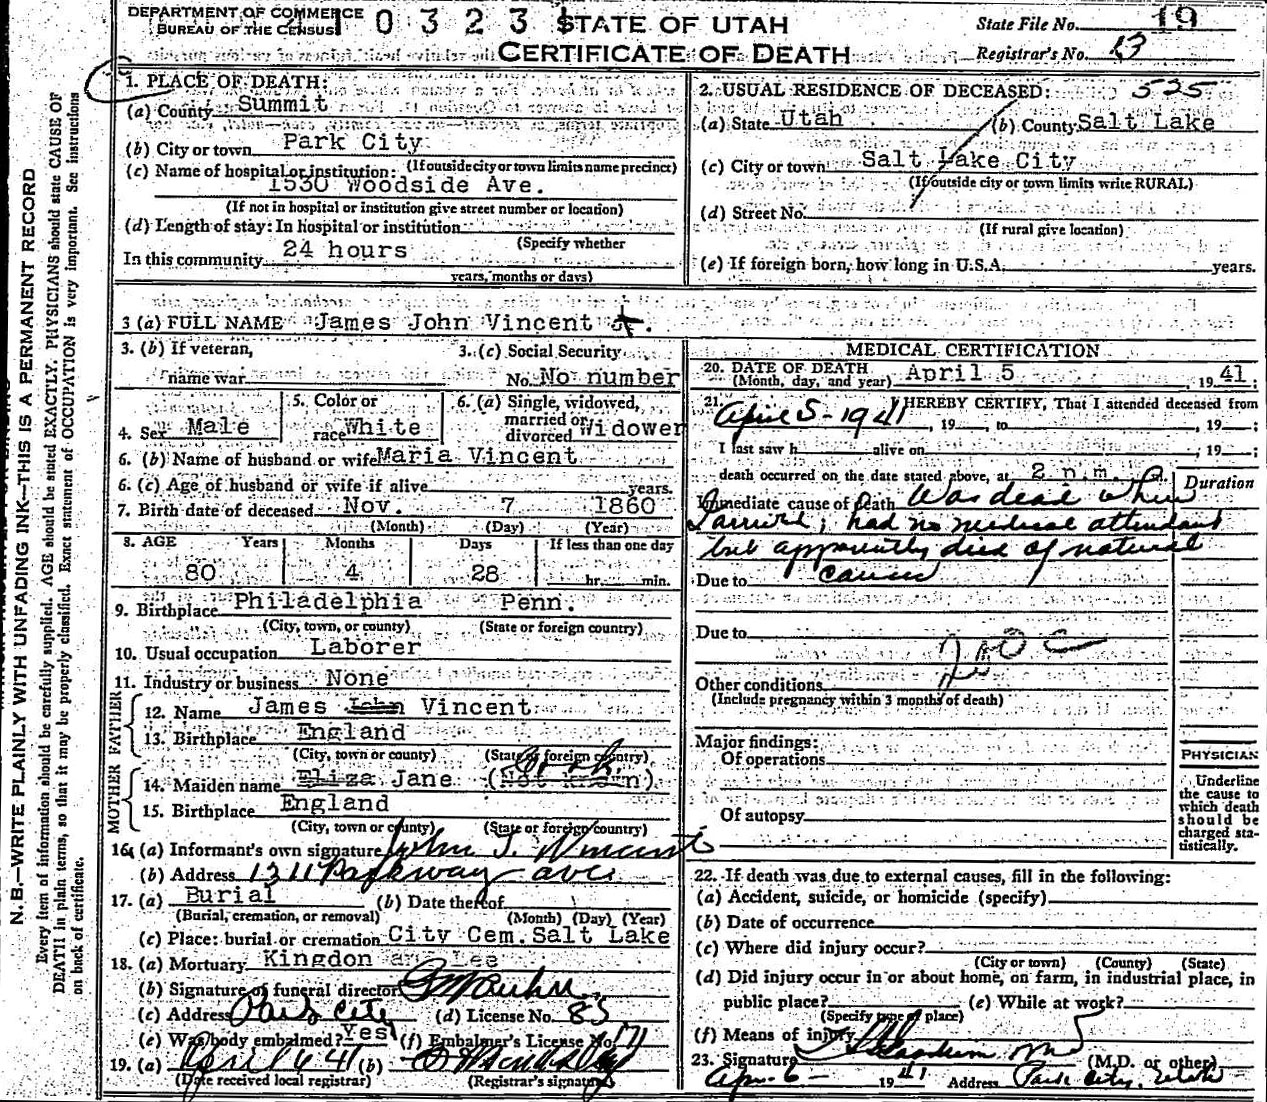 DEPARTMENT OF COMMERCE
BUREAU OF THE CENSUS
0323
STATE OF UTAH
CERTIFICATE OF DEATH
State File No. 19
Registrar's No. 23
N. B.—WRITE PLAINLY WITH UNFADING INK—THIS IS A PERMANENT RECORD
Every item of information should be carefully supplied. AGE should be stated EXACTLY. PHYSICIANS should state CAUSE OF
DEATH in plain terms, so that it may be properly classified. Exact statement of OCCUPATION is very important. See instructions
on back of certificate.
1. PLACE OF DEATH:
(a) County Summit
(b) City or town Park City
(If outside city or town limits name precinct)
(c) Name of hospital or institution:
1530 Woodside Ave.
(If not in hospital or institution give street number or location)
(d) Length of stay: In hospital or institution
(Specify whether
In this community 24 hours
years, months or days)
2. USUAL RESIDENCE OF DECEASED: 525
(a) State Utah (b) County Salt Lake
(c) City or town Salt Lake City
(If outside city or town limits write RURAL)
(d) Street No.
(If rural give location)
(e) If foreign born, how long in U.S.A. years.
3 (a) FULL NAME James John Vincent
3. (b) If veteran,
name war
3. (c) Social Security
No. No number
4. Sex Male
5. Color or
race White
6. (a) Single, widowed,
married or
divorced Widower
6. (b) Name of husband or wife Maria Vincent
6. (c) Age of husband or wife if alive years.
7. Birth date of deceased Nov. 7 1860
(Month) (Day) (Year)
8. AGE Years Months Days If less than one day
80 4 28 hr. min.
9. Birthplace Philadelphia Penn.
(City, town, or county) (State or foreign country)
10. Usual occupation Laborer
11. Industry or business None
FATHER
12. Name James John Vincent
13. Birthplace England
(City, town or county) (State or foreign country)
MOTHER
14. Maiden name Eliza Jane (Not known)
15. Birthplace England
(City, town or county) (State or foreign country)
16. (a) Informant's own signature John T. Vincent
(b) Address 1311 Parkway ave
17. (a) Burial (b) Date thereof
(Burial, cremation, or removal) (Month) (Day) (Year)
(c) Place: burial or cremation City Cem. Salt Lake
18. (a) Mortuary Kingdon and Lee
(b) Signature of funeral director
(c) Address Park City (d) License No. 85
(e) Was body embalmed? Yes (f) Embalmer's License No. 171
19. (a) April 6 41 (b)
(Date received local registrar) (Registrar's signature)
MEDICAL CERTIFICATION
20. DATE OF DEATH
(Month, day, and year) April 5, 1941;
21. I HEREBY CERTIFY, That I attended deceased from
April 5-1941, 19 , to , 19 ;
I last saw h alive on , 19 ;
death occurred on the date stated above, at 2 p.m.
Duration
Immediate cause of death Was dead when
I arrived, had no medical attendant
but apparently died of natural
causes
Due to
Due to
200 c
Other conditions
(Include pregnancy within 3 months of death)
Major findings:
Of operations
Of autopsy
PHYSICIAN
Underline
the cause to
which death
should be
charged sta-
tistically.
22. If death was due to external causes, fill in the following:
(a) Accident, suicide, or homicide (specify)
(b) Date of occurrence
(c) Where did injury occur?
(City or town) (County) (State)
(d) Did injury occur in or about home, on farm, in industrial place, in
public place? (e) While at work?
(Specify type of place)
(f) Means of injury
23. Signature MD (M.D. or other)
Apr-6- 1941 Address Park City, Utah